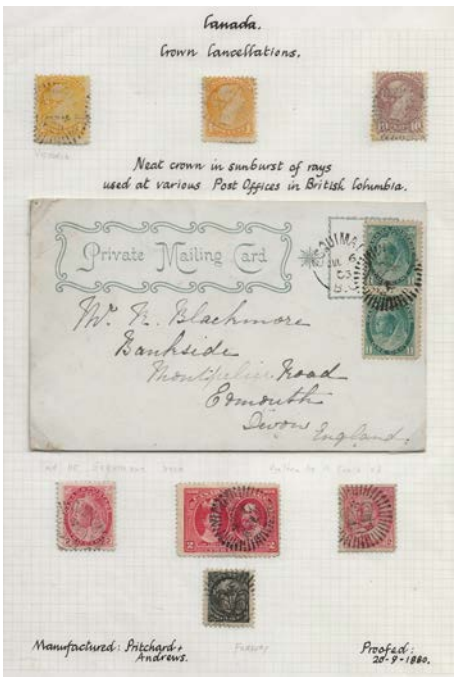 Canada.
Crown Cancellations.
Neat crown in sunburst of rays
used at various Post Offices in British Columbia.
Private Mailing Card
ESQUIMALT
JUL 6
03
B.C.
Mr. R. Blackmore
Bankside
Road
Exmouth
Devon
England.
2 2
Manufactured: Pritchard +
Andrews.
Proofed:
20-9-1880.